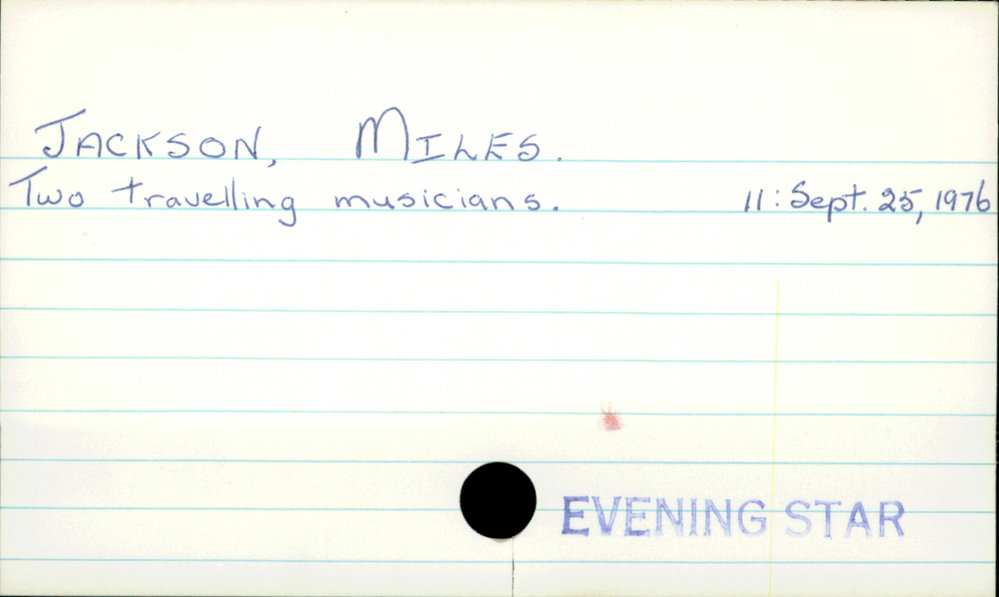 JACKSON, MILES.
Two travelling musicians. 11: Sept. 25, 1976
EVENING STAR